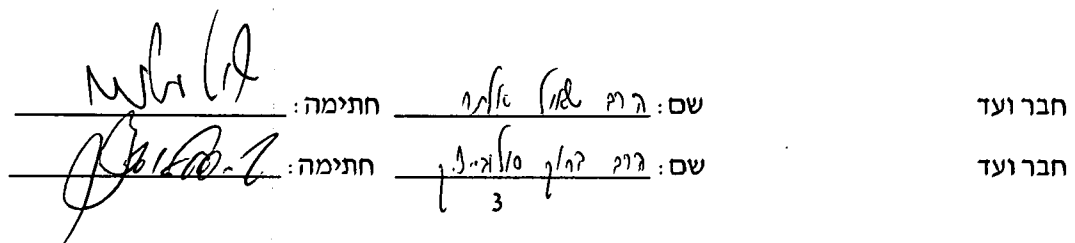 חבר ועד שם: הרב שאול אלתר חתימה:
חבר ועד שם: הרב ברוך סולובייציק חתימה:
3